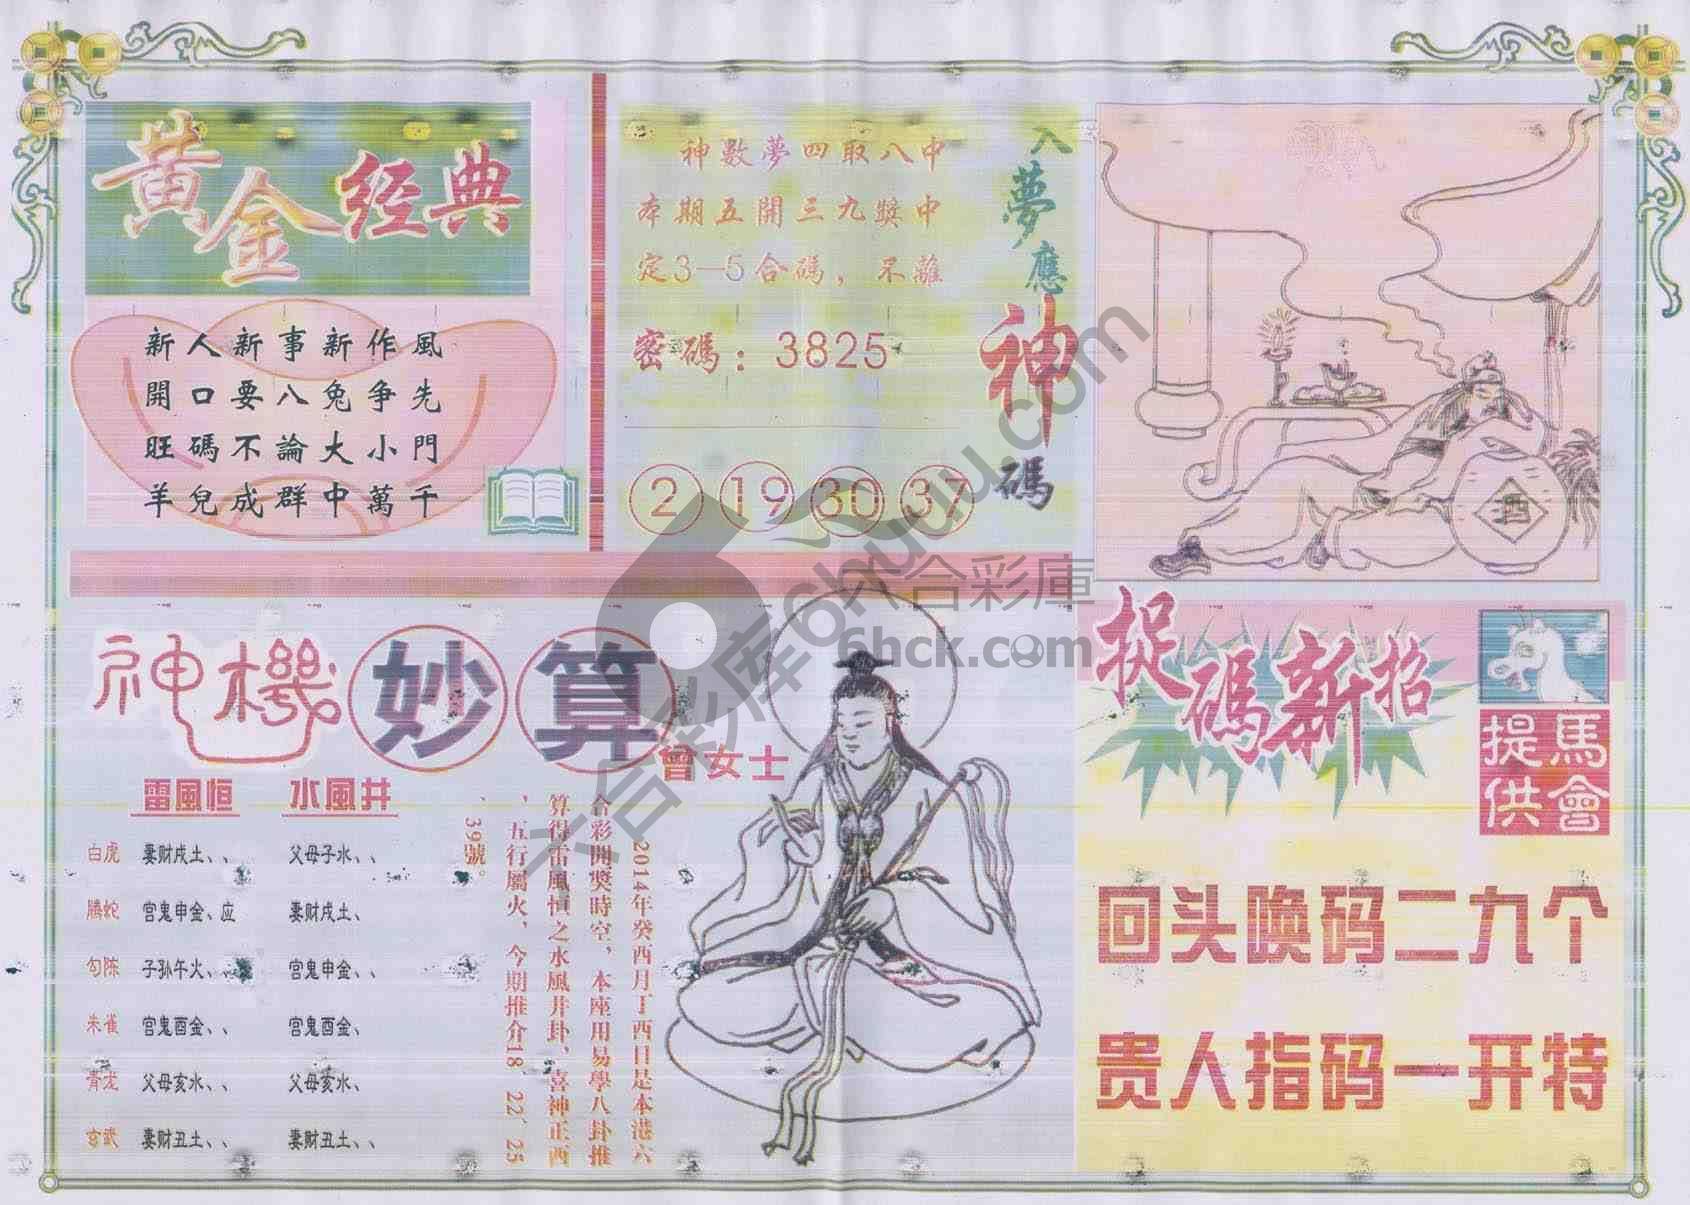 黄金经典
新人新事新作風
開口要八兔争先
旺碼不論大小門
羊兒成群中萬千
神數夢四取八中
本期五開三九獎中
定3—5合碼，不離
密碼：3825
2 19 30 37
入夢應神碼
酒
神機妙算
曾女士
雷風恒 水風井
白虎 妻财戌土、、 父母子水、、
腾蛇 官鬼申金、应 妻财戌土、
勾陈 子孙午火、、 官鬼申金、、
朱雀 官鬼酉金、、 官鬼酉金、
青龙 父母亥水、、 父母亥水、
玄武 妻财丑土、、 妻财丑土、、
2014年癸酉月丁酉日是本港六
合彩開獎時空，本座用易學八卦推
算得雷風恒之水風井卦、喜神正西
、五行屬火，今期推介18、22、25
、39號。
捉碼新招
馬會提供
回头唤码二九个
贵人指码一开特
六合彩库6huuu.com
六合彩庫
6hck.com